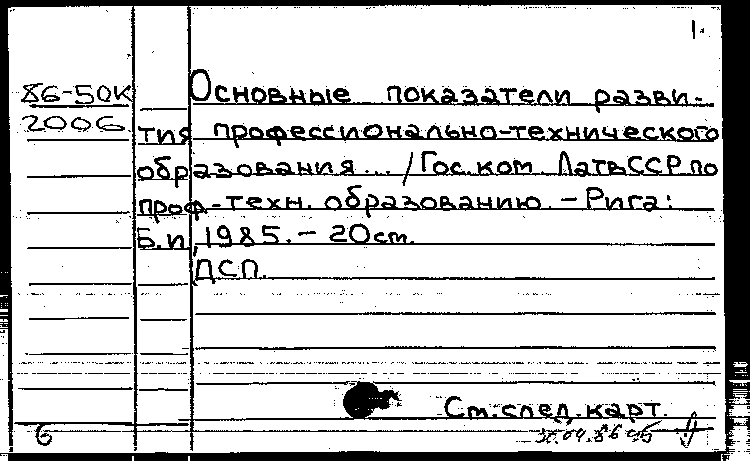 1.
86-50К Основные показатели разви-
2006 тия профессионально-технического
образования... /Гос.ком ЛатвССР по
проф.-техн. образованию. - Рига:
Б.и, 1985. - 20 ст.
ДСП.
См.след.карт.
6 30.04.86